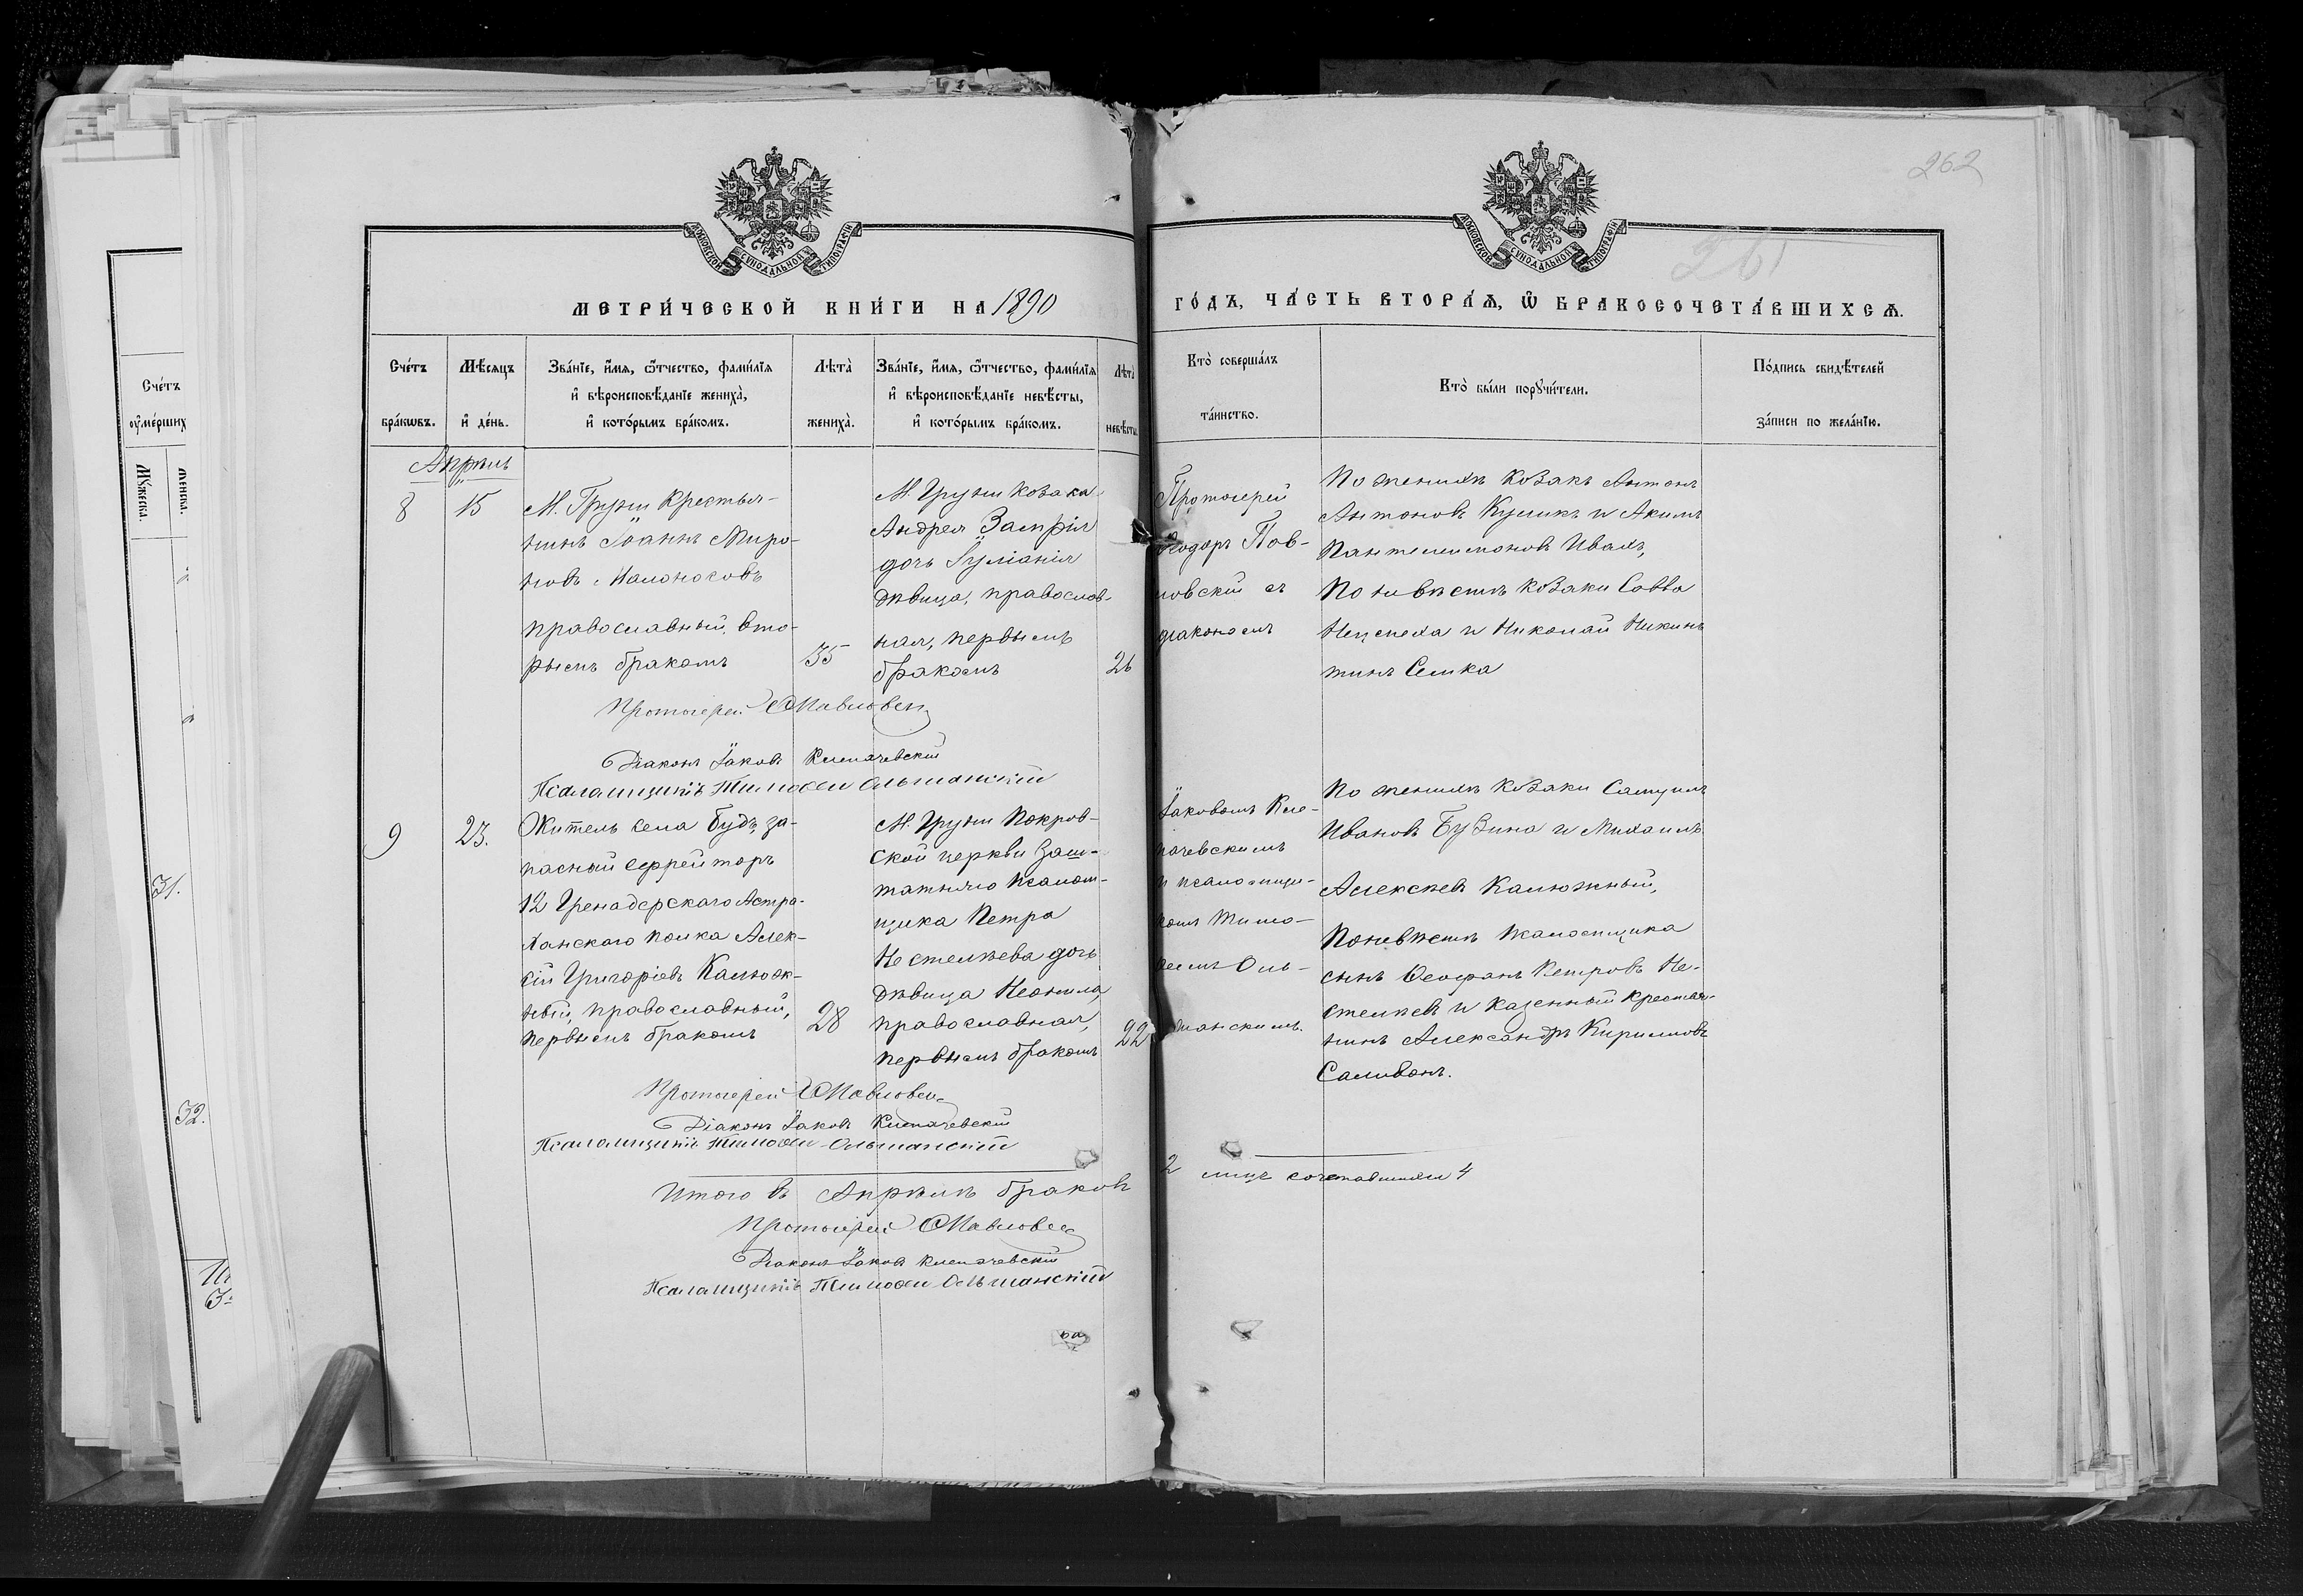 262
261
МОСКОВСКОЙ СѴНОДАЛЬНОЙ ТИПОГРАФІИ
МОСКОВСКОЙ СѴНОДАЛЬНОЙ ТИПОГРАФІИ
МЕТРИ́ЧЕСКОЙ КНИ́ГИ НА 1890
ГО́ДЪ, ЧА́СТЬ ВТОРА́Ѧ, Ѿ БРАКОСОЧЕТА́ВШИХСѦ.
Сче́тъ
ᲂу҆ме́рших
Мꙋ́жеска.
Женска.
31.
32.
Сче́тъ бра́кѡвъ.
Мѣ́сѧцъ и҆ де́нь.
Зва́нїе, и҆́мѧ, ѻ҆́тчество, фами́лїѧ
и҆ вѣроисповѣ́данїе жениха̀,
и҆ кото́рымъ бра́комъ.
Лѣта̀ жениха̀.
Зва́нїе, и҆́мѧ, ѻ҆́тчество, фами́лїѧ
и҆ вѣроисповѣ́данїе невѣ́сты,
и҆ кото́рымъ бра́комъ.
Лѣта̀ невѣ́сты
Кто̀ соверша́лъ
та́инство.
Кто̀ бы́ли порꙋчи́тели.
По́дпись свидѣ́телей
за́писи по жела́нїю.
Апрѣль
8
15
М. Груни крестья-
нинъ Іоаннъ Миро-
новъ
православный, вто-
рымъ бракомъ
35
М. Груни козака
Андрея
дочь Іуліанія
дѣвица, православ-
ная, первымъ
бракомъ
26
Протоіерей
Ѳеодоръ Пав-
ловскій съ
діакономъ
По женихѣ козакъ Антонъ
Антоновъ Куликъ и Акимъ
Пантелимоновъ Ивахъ,
По невѣстѣ козаки Савва
и Николай Ники
тинъ Семка
Протоіерей Ѳ Павловскій
Діаконъ Іаковъ
Псаломщикъ Тимоѳей Ольшанскій
9
23.
Житель села Будъ, за-
пасный ефрейторъ
12 Гренадерскаго Астра-
ханскаго полка Алек-
сій Григоріевъ Калюж-
ный, православный,
первымъ бракомъ
28
М. Груни Покров-
ской церкви заш-
татнаго псалом-
щика Петра
Нестелѣева дочь
дѣвица Неонила,
православная,
первымъ бракомъ
22
Іаковомъ Кле-
пачевскимъ
и псаломщи-
комъ Тимо-
ѳеемъ Оль-
шанскимъ.
По женихѣ козаки Самуилъ
Ивановъ Бузина и Михаилъ
Алексѣевъ Калюжный,
По невѣстѣ псаломщика
сынъ Ѳеофанъ Петровъ Не-
стелѣевъ и казенный крестья-
нинъ Александръ Кирилловъ
Саливонъ.
Протоіерей Ѳ Павловскій
Діаконъ Іаковъ
Псаломщикъ Тимоѳей Ольшанскій
Итого въ Апрѣлѣ браковъ
2 лицъ сочетавшихся 4
Протоіерей Ѳ Павловскій
Діаконъ Іаковъ Клепачевскій
Псаломщикъ Тимоѳей Ольшанскій